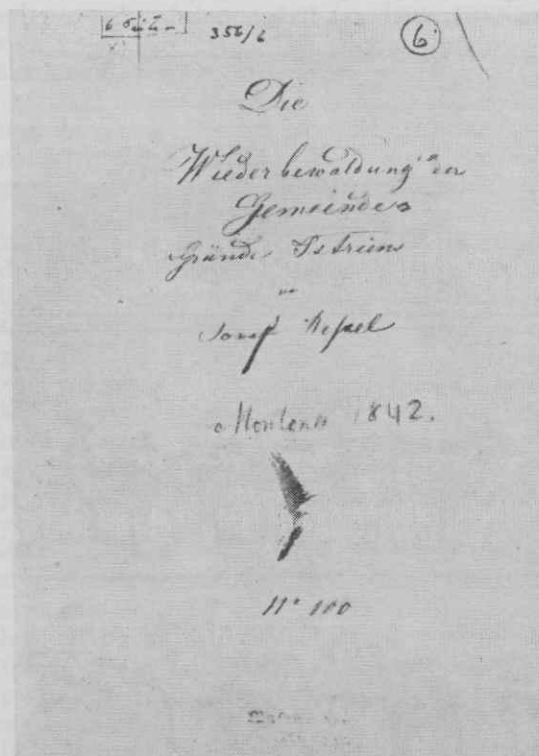 356/6 6
Die
Wiederbewaldung der
Gemeinde
Gründe Istriens
von
Josef Ressel
Montona 1842.
N° 100